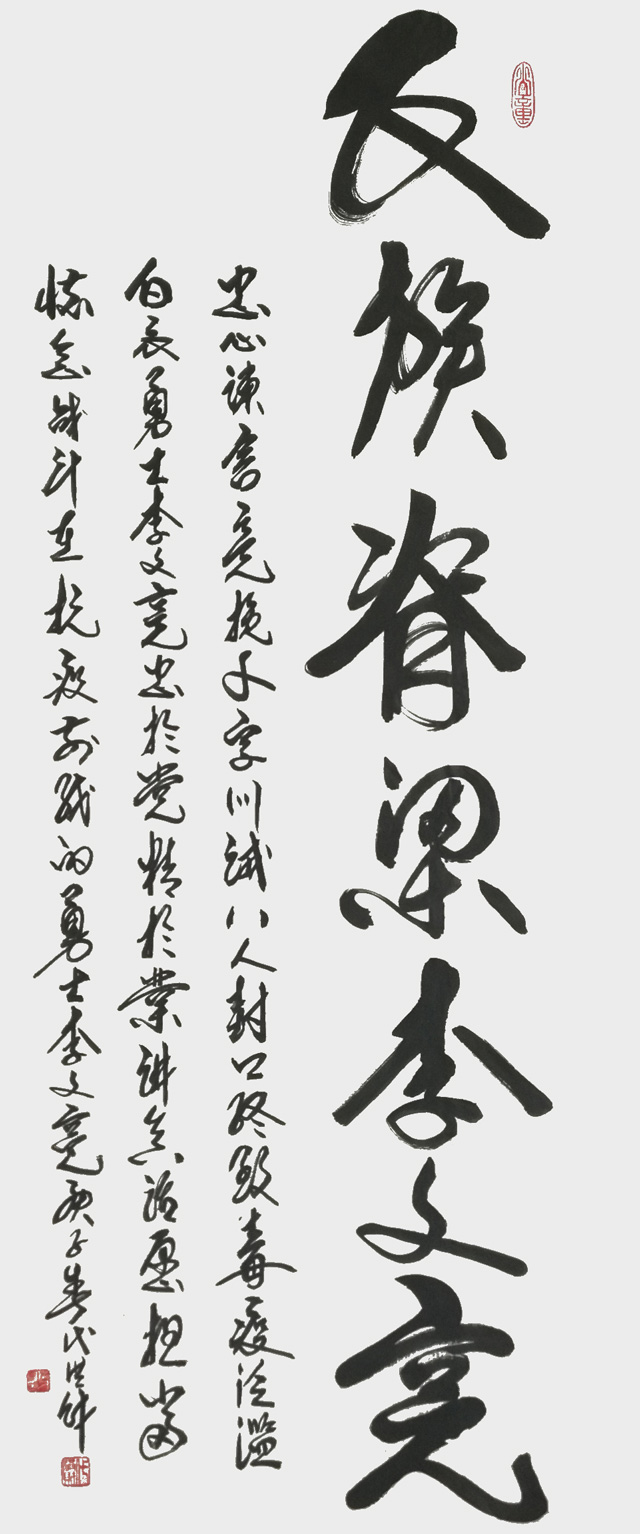 民族脊梁李文亮
忠心谏言竟换字训诫八人封口终致毒疫泛滥
白衣勇士李文亮忠於党精於業讲真话愿担当
怀念战斗在抗疫前线的勇士李文亮庚子春